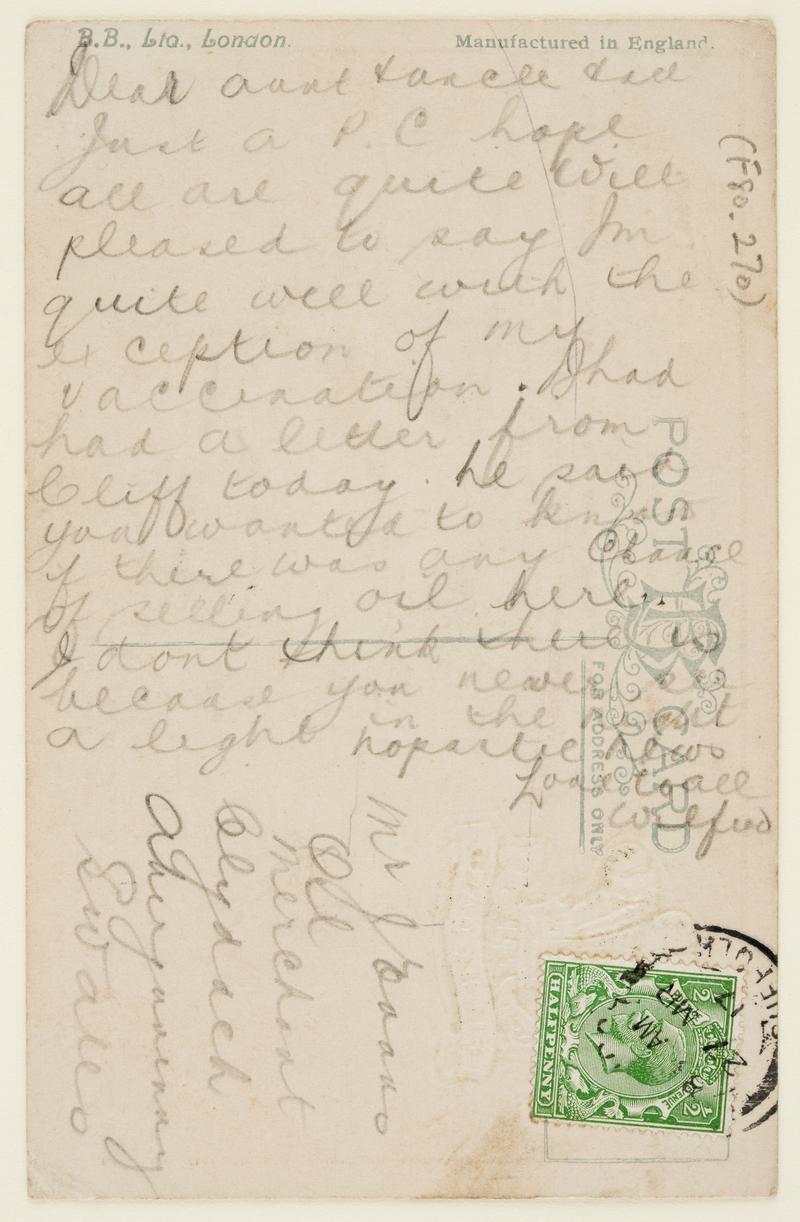 B.B., Ltd., London.
Manufactured in England.
Dear aunt & uncle & all
Just a P.C hope
all are quite Well
pleased to say Im
quite well with the
exception of my
vaccination. I had
had a letter from
Cliff today. he said
you wanted to know
if there was any chance
of selling oil here.
I dont think there is
because you never see
a light in the night
no partic news
Love to all
Wilfred
(F80.270)
POST CARD
FOR ADDRESS ONLY
Mr J Evans
Oil
Merchant
Clydach
Abergavenny
S Wales
HALFPENNY
1/2
1/2
AM
MR
17